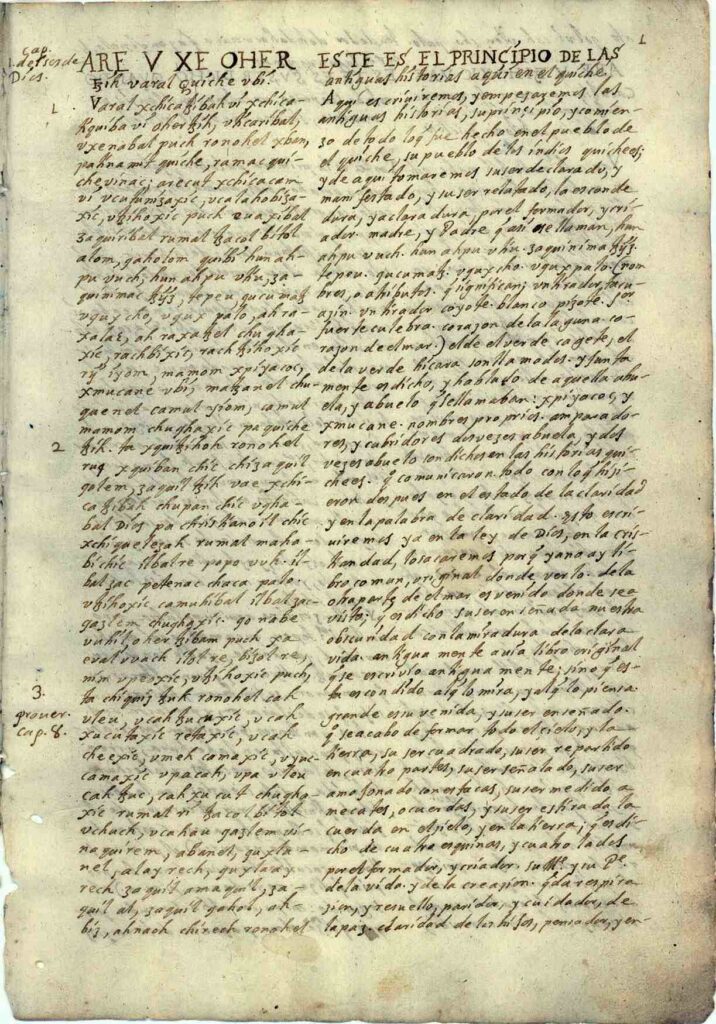 1
Cap.
1. del ser de
Dios.
ARE V XE OHER
tzih varal Quiche ubi.
1
Varal xchicatzibah vi xchica-
tiquiba vi oher tzih, uticaribal,
uxenabal puch ronohel xban,
pa tinamit quiche, ramac qui-
che vinac; arecut xchicacam
vi ucutunizaxic, ucalahobiza-
xic, utzihoxic puch euaxibal
zaquiribal rumal tzacol bitol
alom, qaholom quibi hun ah-
pu vuch, hun ahpu utiu, za-
quinimac tzyz, tepeu, qucumatz
uquxcho, uqux palo, ah ra-
xalaz, ah raxatzel chugha-
xic, rachbixic, rachtzihoxic
ri iyom, mamom xpiyacoc,
xmucane ubi, matzanel chu-
quenel camul iyom, camul
mamom chughaxic pa quiche
2
tzih. ta xquitzihoh ronohel
ruq xquiban chic chi zaquil
qolem, zaquil tzih vae xchi-
catzibah chupan chic ugha-
bal Dios pa christianoil chic
xchiquelezah rumal maha-
bi chic ilbal re popo vuh, il-
bal zac petenac chaca palo.
utzihoxic camuhibal ilbal zac-
qazlem chughoxic. qo nabe
vuhil, oher tzibam puch xa
eval uvach ilol re, bizol re,
nim upeoxic, utzihoxic puch,
3.
prouer.
cap. 8.
ta chiquis tzuk ronohel cah
uleu, ucah tzucuxic, ucah
xucutaxic retaxic, ucah
cheexic, umeh camaxic, uyuc-
camaxic upa cah, upa uleu
cah tzuc, cah xucut chugho-
xic rumal ri tzacol bitol
uchuch, ucahau qazlem vi-
naquirem, abanel, quxla-
nel, alay rech, quxlaay
rech zaquil amaquil, za-
quil al, zaquil qahol, ah-
biz, ahnaoh chirech ronohel
ESTE ES EL PRINCIPIO DE LAS
antiguas historias aqui en el quiche,
Aqui escriuiremos, y empezaremos las
antiguas historias, su principio, y comien-
zo de todo lo q fue hecho en el pueblo de
el quiche, su pueblo de los indios quichees;
y de aqui tomaremos su ser declarado, y
manifestado, y su ser relatado, la esconde
dura, y aclaradura, por el formador, y cri-
ador. madre, y Padre q asi se llaman, hun
ahpu vuch. hun ahpu utiu. zaquinima tzyz.
tepeu. qucumatz. uqux cho. uqux palo. (nom
bres, o atributos. q significan; un tirador tacu-
azin. un tirador coyote. blanco pizote. Señor
fuerte culebra. corazon de la laguna. co-
razon de el mar.) el de el verde cagete, el
de la verde hicara son llamados. y junta
mente es dicho, y hablado de aquella abu-
ela, y abuelo q se llamaban: xpiyacoc, y
xmucane. nombres proprios. amparado-
res, y cubridores dos vezes abuela, y dos
vezes abuelo son dichos en las historias qui-
chees. q comunicaron todo con lo q hizi-
eron despues en el estado de la claridad
y en la palabra de claridad. Esto escri-
uiremos ya en la ley de Dios, en la cris-
tiandad, lo sacaremos porq ya no ay li-
bro comun, original donde verlo. de la
otra parte de el mar es venido donde se a
visto; y es dicho su ser enseñada nuestra
obscuridad con la miradura de la clara
vida. antiguamente auia libro original
q se escriuio antiguamente; sino q es-
ta escondido al q lo mira, y al q lo piensa.
grande es su venida, y su ser enseñado.
q se acabo de formar todo el cielo, y la
tierra, su ser cuadrado, su ser repartido
en cuatro partes, su ser señalado, su ser
amojonado con estacas, su ser medido a
mecates, o cuerdas, y su ser estirada la
cuerda en el cielo, y en la tierra; q es di-
cho de cuatro esquinas, y cuatro lados
por el formador, y criador. su Me. y su Pe.
de la vida. y de la creazion. q da respira-
zion, y resuello, parida, y cuidador, de
la paz. claridad de los hijos, pensador, y en-